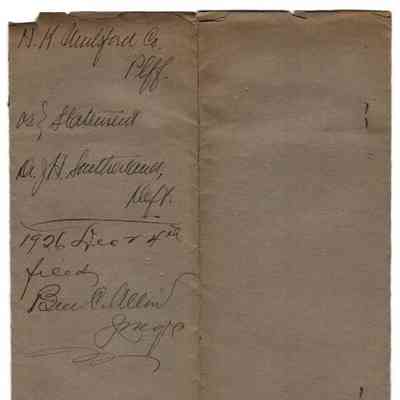 H. K. Mulford Co.
Plff.
vs } Statement
Dr J H. Southerland,
Deft.
1926. Dec 4th
filed
Ben C. Allin